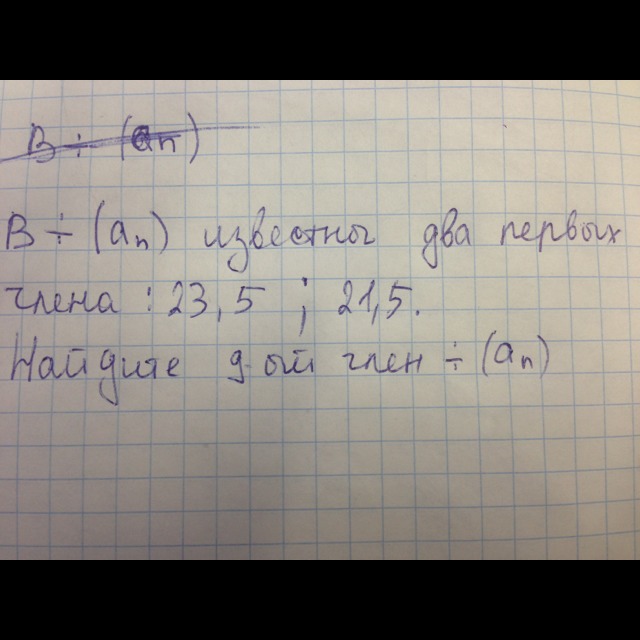 В ÷ (an)
В ÷ (an) известны два первых
члена : 23,5 ; 21,5.
Найдите 9-ый член ÷ (an)